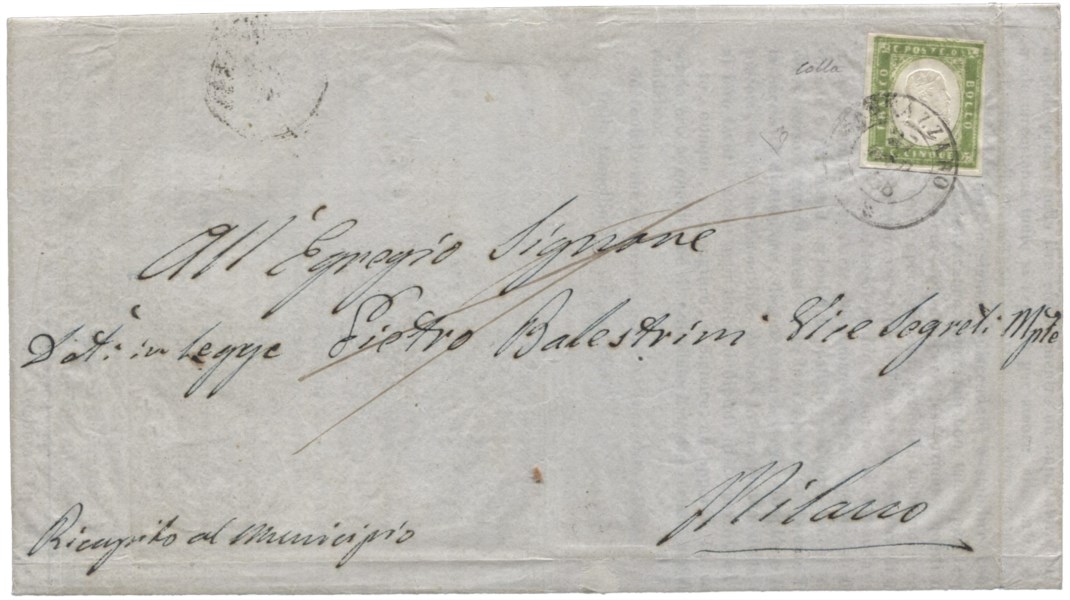 colla
C. POSTE
FRANCO
BOLLO
C. CINQUE
All' Egregio Signore
Dott. in Legge Pietro Balestrini Vice Segret: Mple
Milano
Ricapito al Municipio